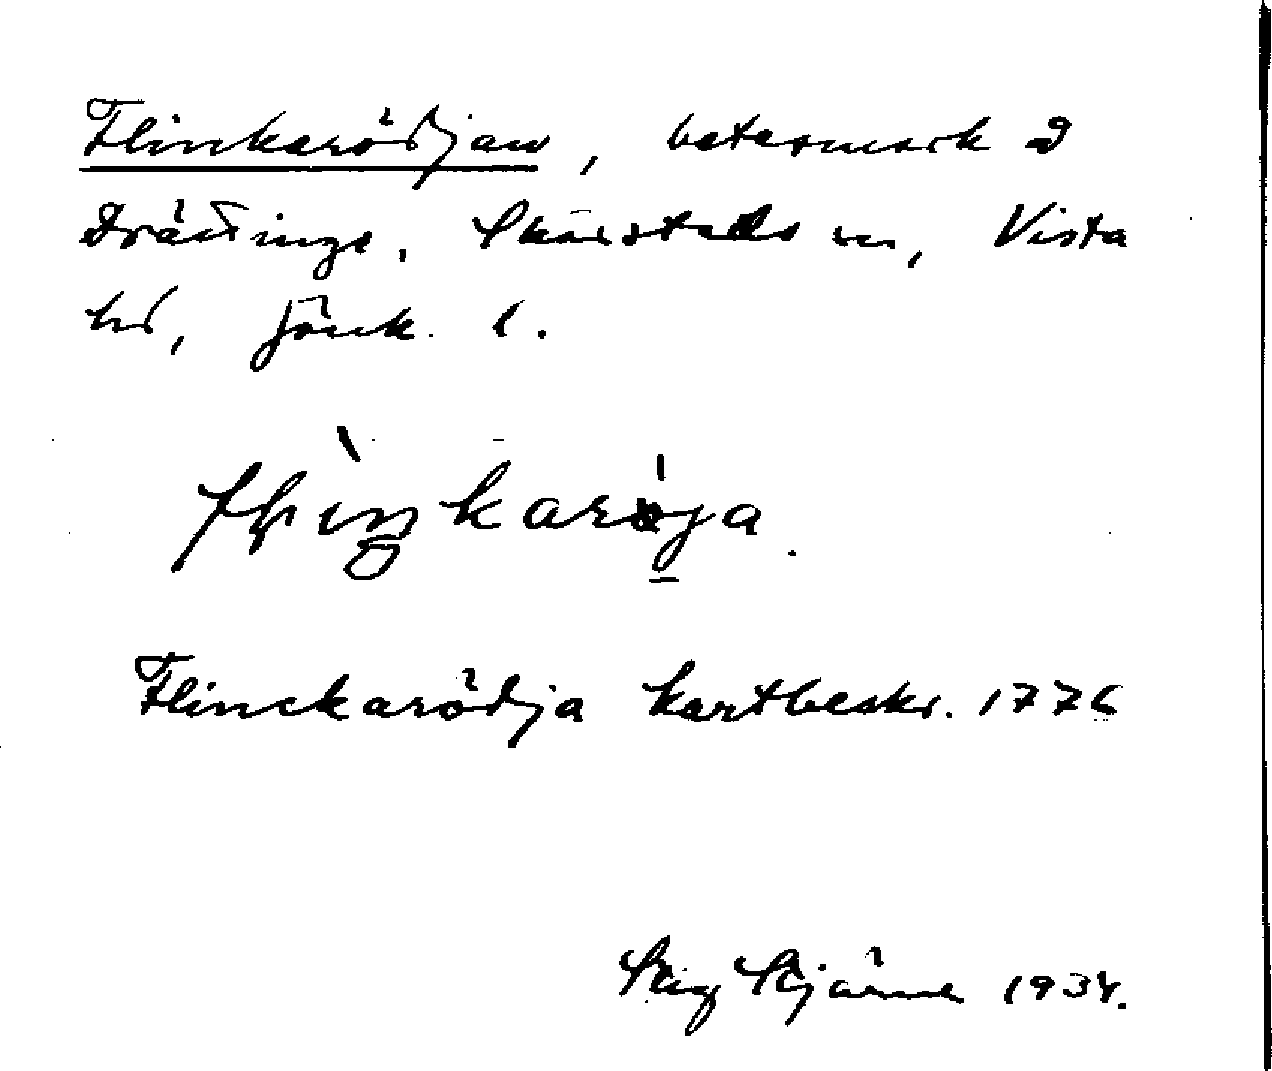 Flinkarödjan, betesmark å
Drättinge, Skärstads sn, Vista
hd, Jönk. l.
flìŋkaröja.
Flinckarödja kartbeskr. 1776
Stig Stjärne 1934.